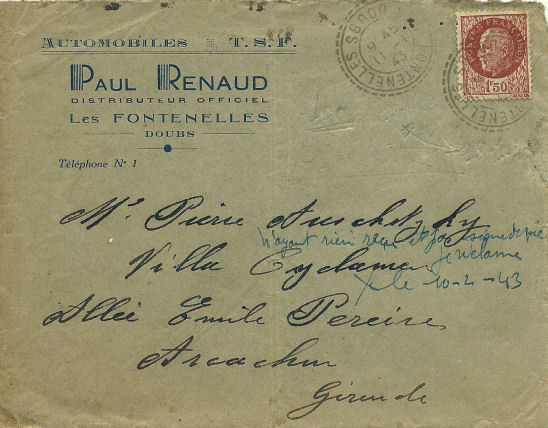 AUTOMOBILES T.S.F.
PAUL RENAUD
DISTRIBUTEUR OFFICIEL
LES FONTENELLES
DOUBS
Téléphone N° 1
9 45
11-2
43
DOUBS
1F50
Mr Pierre Auschitzky
n'ayant rien reçu et pas signe de vie
je réclame
Villa Cyclamen
le 10-2-43
Allée Emile Pereire
Arcachon
Gironde